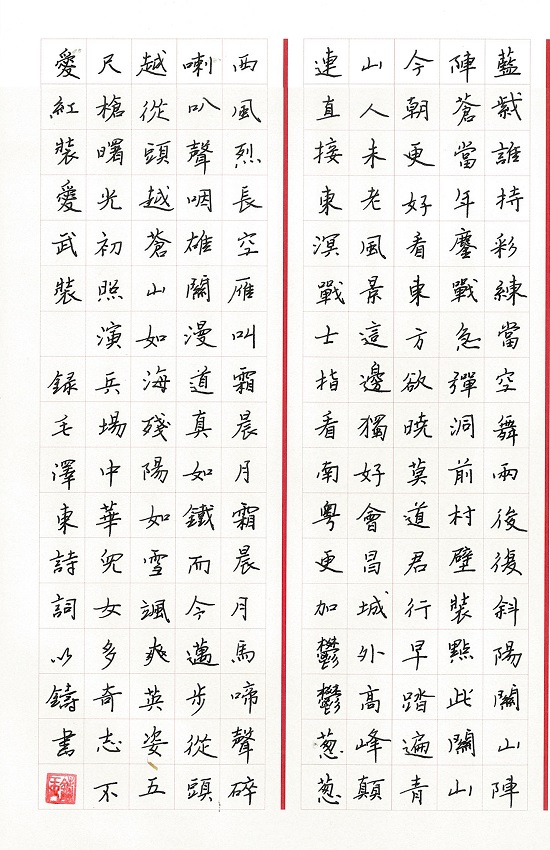 藍紫誰持彩練當空舞雨後復斜陽關山陣
陣蒼當年鏖戰急彈洞前村壁裝點此關山
今朝更好看東方欲曉莫道君行早踏遍青
山人未老風景這邊獨好會昌城外高峰顛
連直接東溟戰士指看南粵更加鬱鬱葱葱
西風烈長空雁叫霜晨月霜晨月馬啼聲碎
喇叭聲咽雄關漫道真如鐵而今邁步從頭
越從頭越蒼山如海殘陽如雪颯爽英姿五
尺槍曙光初照演兵場中華兒女多奇志不
愛紅裝愛武裝 録毛澤東詩詞以鑄書